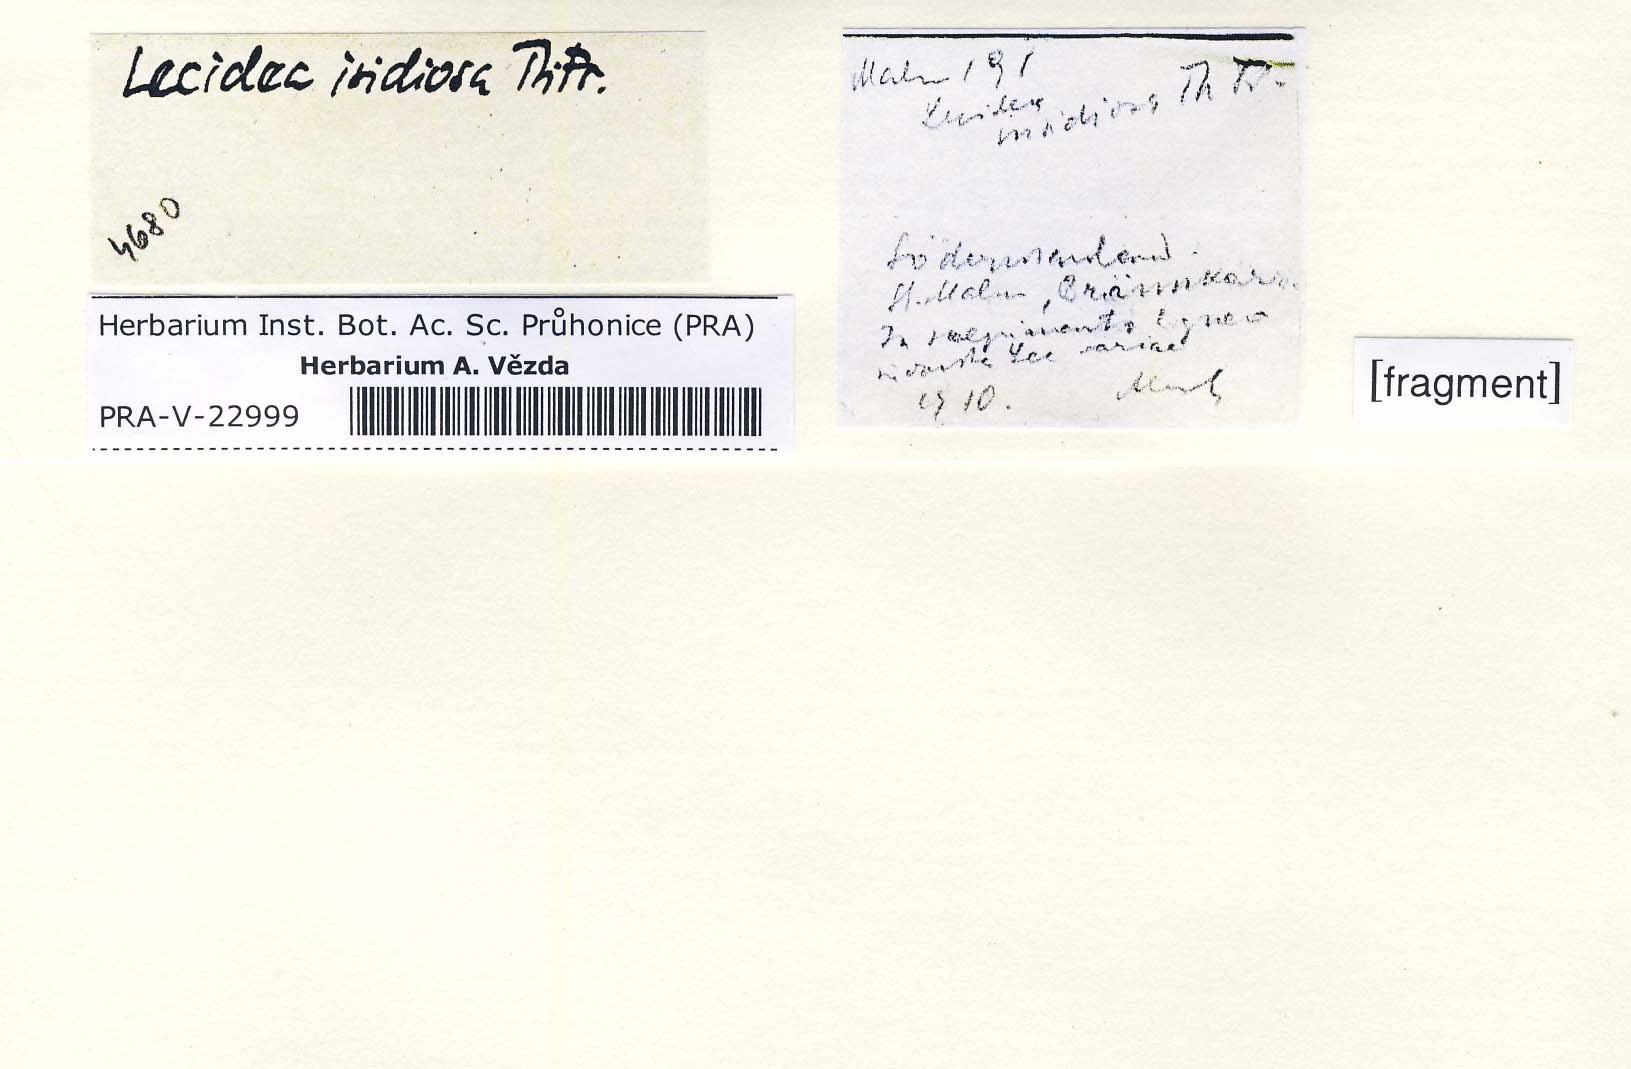 Lecidea isidiosa Th.Fr.
4680
Herbarium Inst. Bot. Ac. Sc. Průhonice (PRA)
Herbarium A. Vězda
PRA-V-22999
Malm 191
Lecidea
insidiosa Th Fr.
Södermanland.
St. Malm, Brännkärr.
In saepimento ligneo
Lec variae
1910.
[fragment]